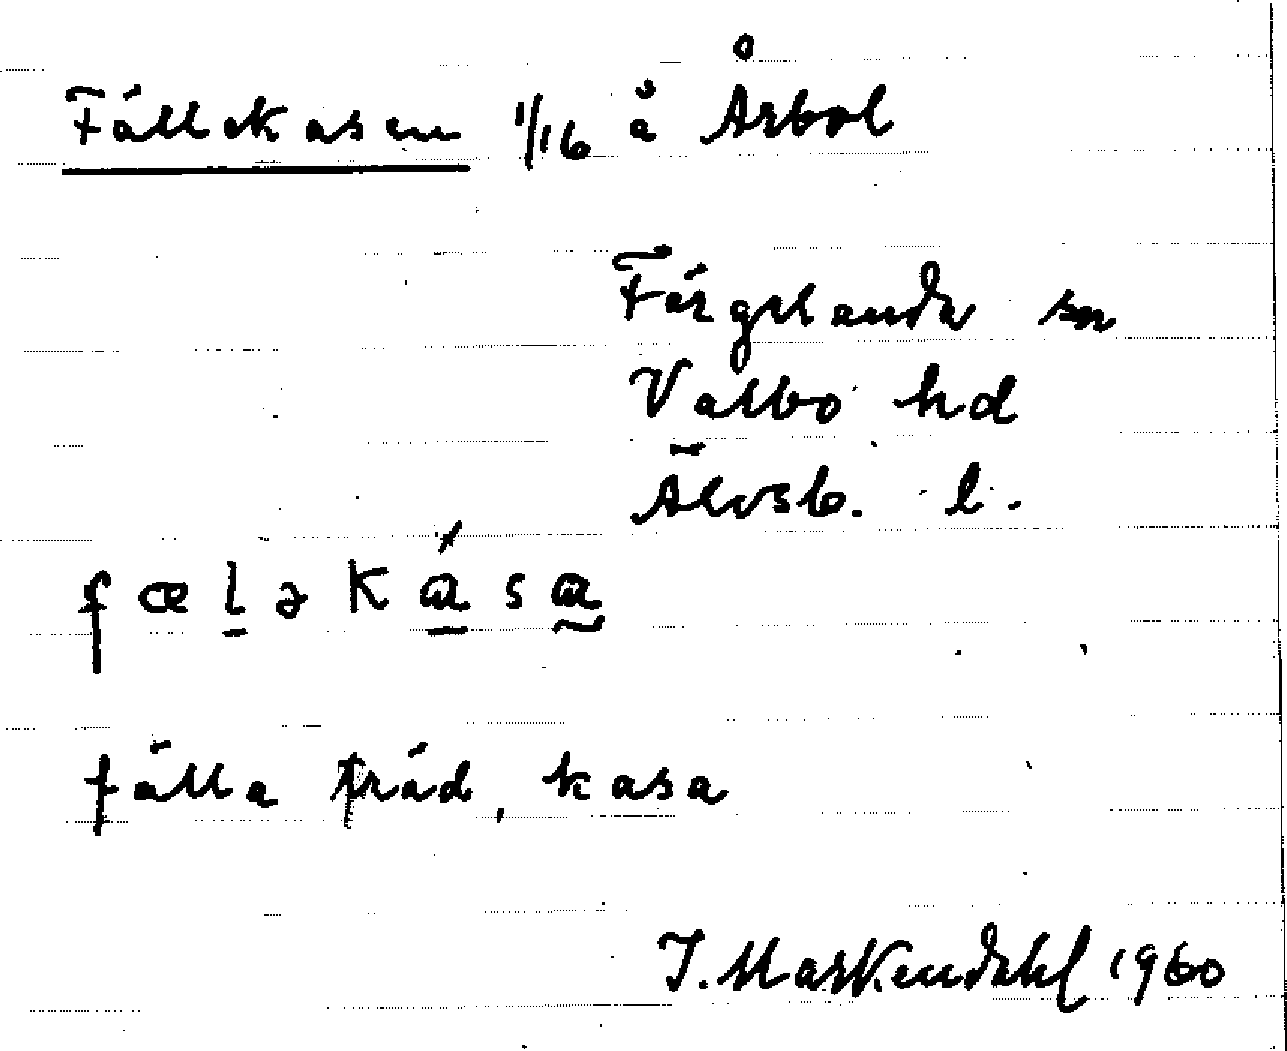 Fällekasen 1/16 å Årbol
Färgelanda sn
Valbo hd
Älvsb. l.
fælǝkása
fälla träd, kasa
J. Markendahl 1960